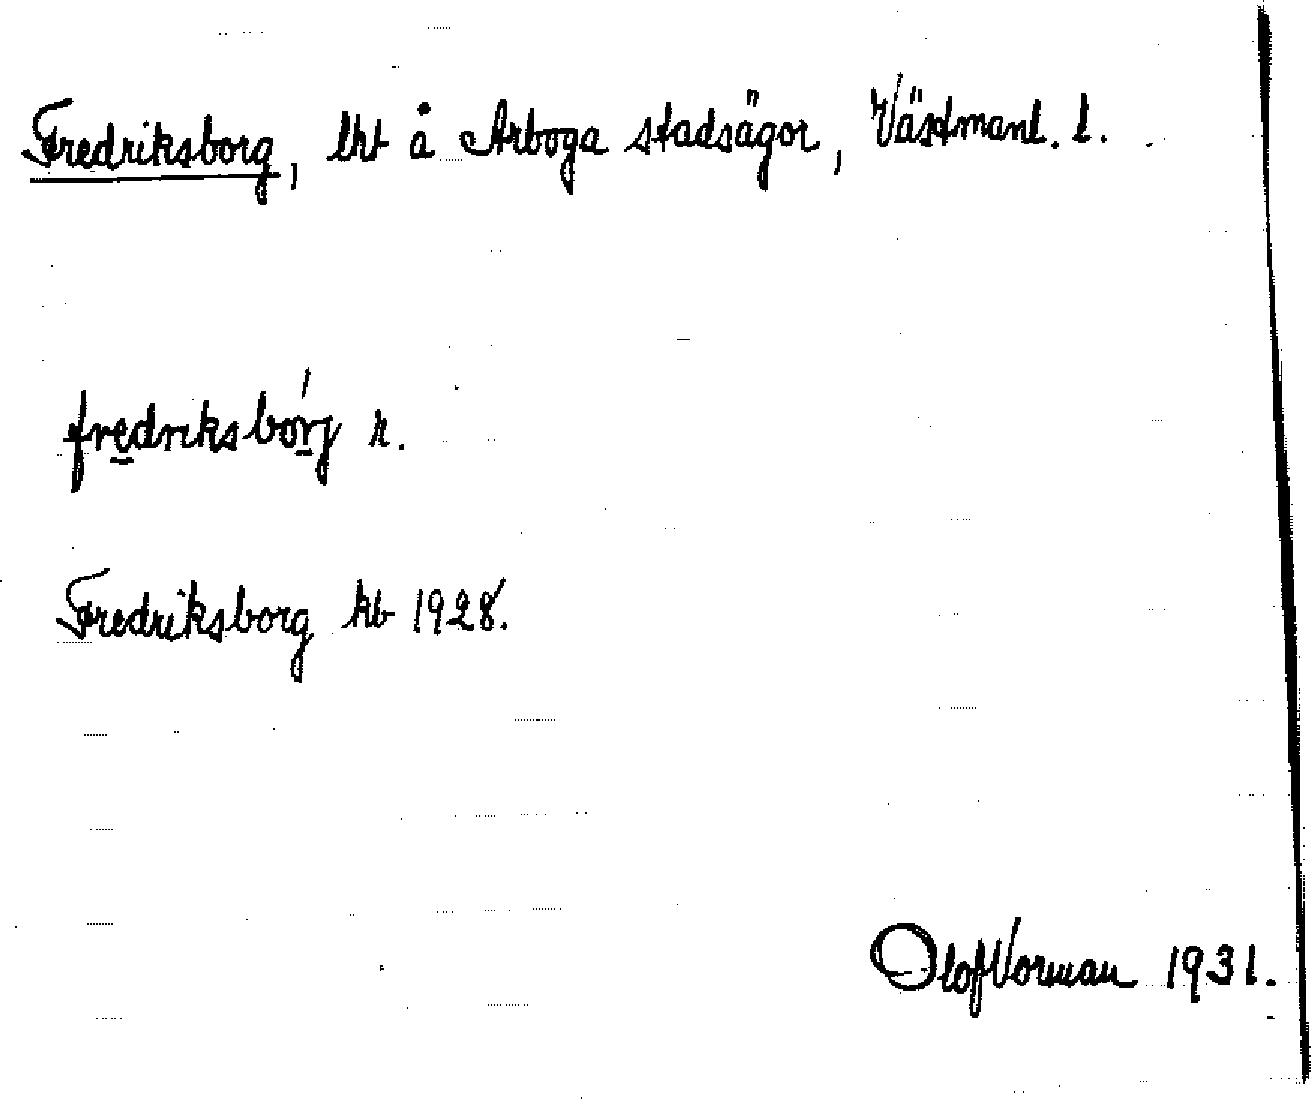 Fredriksborg, lht å Arboga stadsägor, Västmanl. l.
fredriksbórj n.
Fredriksborg kb 1928.
Olof Vorman 1931.